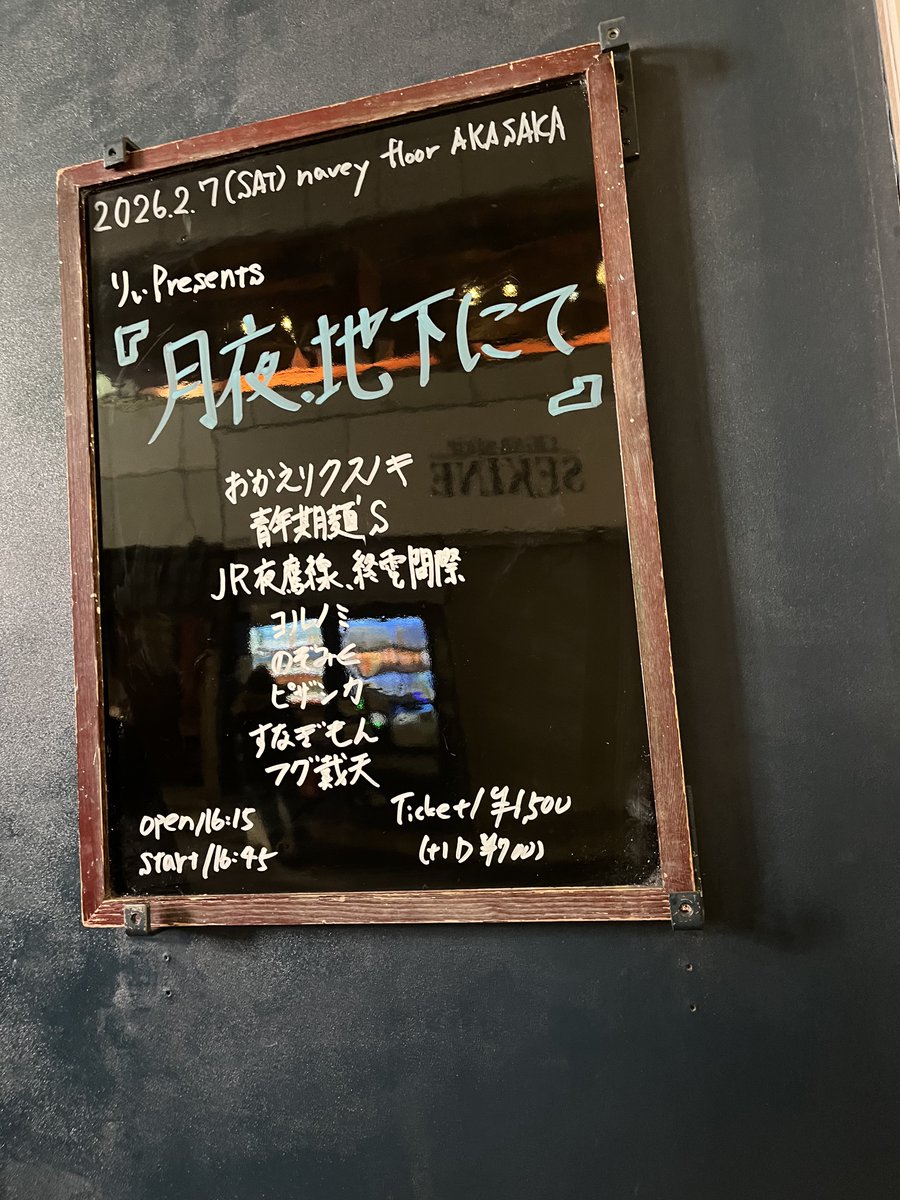 2026.2.7(SAT) navey floor AKASAKA
りぃPresents
『月夜、地下にて』
おかえりクスノキ
青年期麺'S
JR夜鷹線、終電間際
ヨルノミ
のぞみく
ピザンカ
すなぞもん
フグ戴天
open/16:15
start/16:45
Ticket/¥1,500
(+1D ¥700)
SEKINE